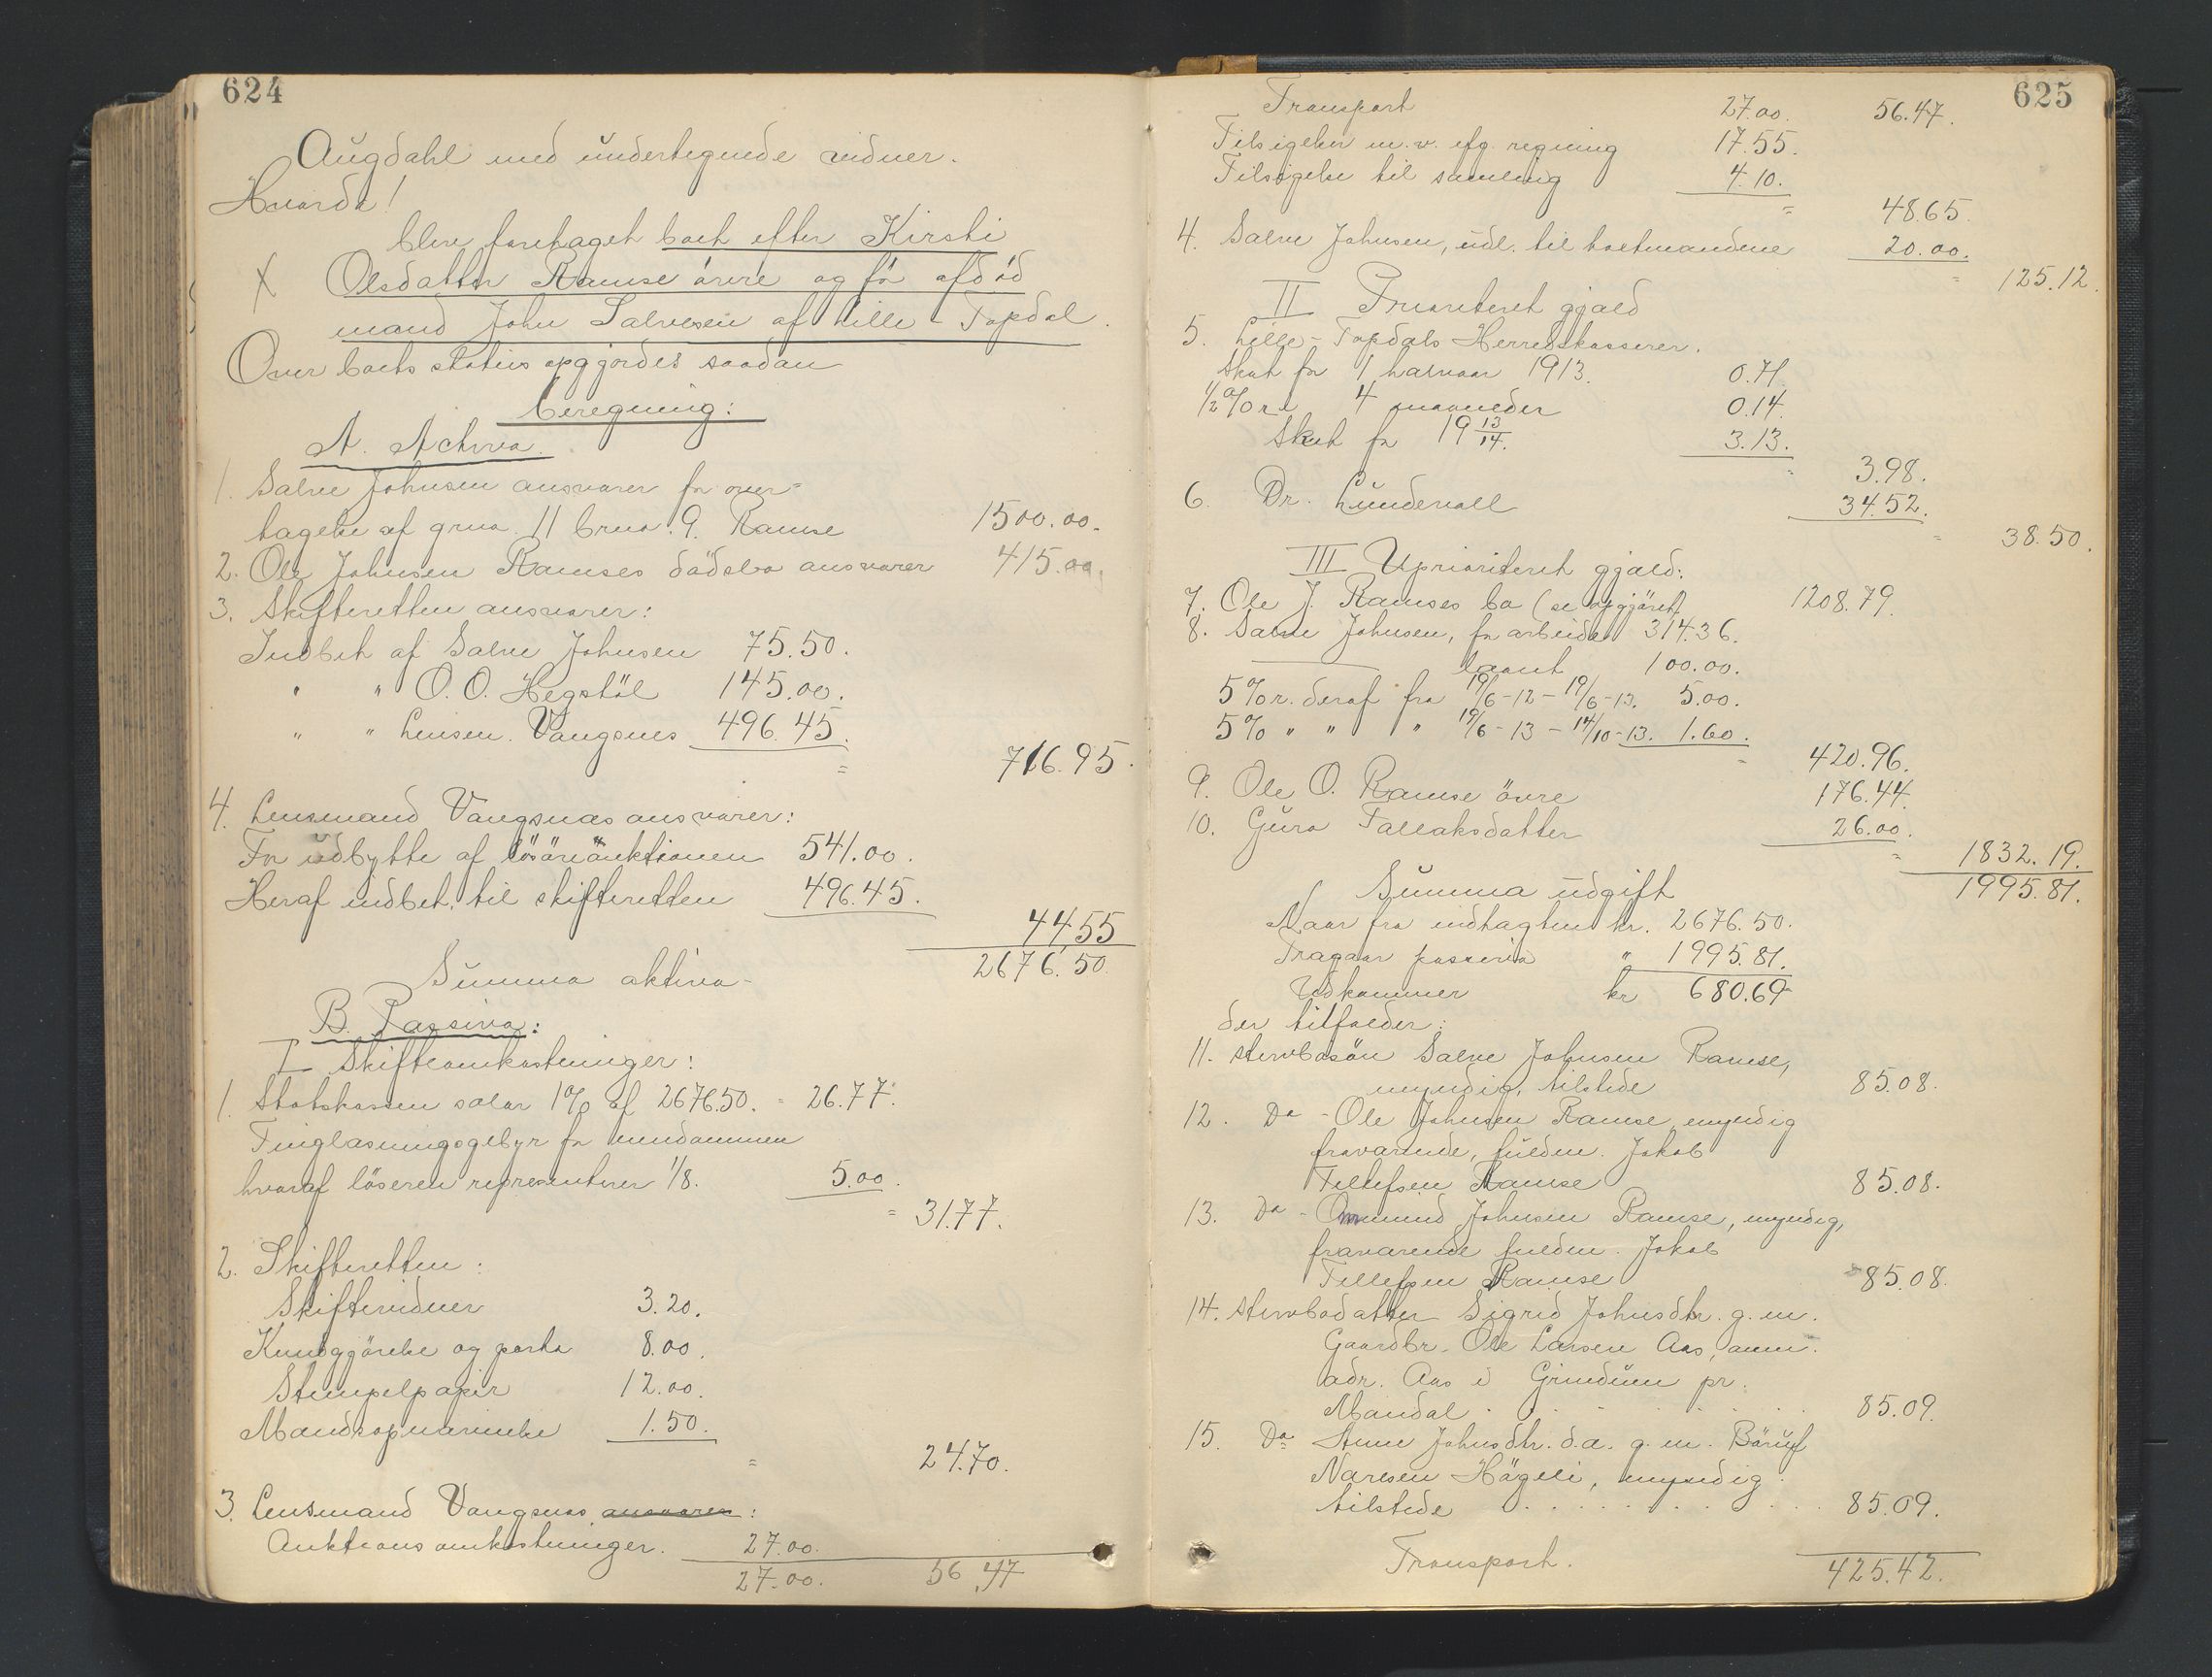 624
Augdahl med undertegnede vidner.
Hvorda!
blev foretaget boet efter Kirsti
X Olsdatter Ramse övre og før afdød
mand John Salvesen af Lille-Topdal.
Over boets status opgjordes saadan
beregning:
A. Activa.
1. Salve Johnsen ansvarer for over-
tagelse af grno. 11 brno. 9. Ramse 1500.00.
2. Ole Johnsen Ramses dödsbo ansvarer 415.00.
3. Skifteretten ansvarer:
Indbet af Salve Johnsen 75.50.
" " O. O. Hegstöl 145.00.
" " Lensm. Vangsnes 496.45.
= 716.95.
4. Lensmand Vangsnæs ansvarer:
For udbytte af lösöreauktionen 541.00.
Heraf indbet. til skifteretten 496.45.
44.55
Summa aktiva - 2676.50.
B. Passiva:
I Skifteomkostninger:
1. Statskassen salær 1% af 2676.50. - 26.77.
Tinglæsningsgebyr for eiendommen
hvoraf löseren representerer 1/8. 5.00.
= 31.77.
2. Skifteretten:
Skiftevidner 3.20.
Kundgjörelse og porto 8.00.
Stempelpapir 12.00.
Mandsopnævnelse 1.50.
= 24.70.
3. Lensmand Vangsnæs ansvarer:
Auktionsomkostninger. 27.00.
27.00. 56.47
625
Transport 27.00. 56.47.
Tilsigelser m. v. efg. regning 17.55.
Tilsigelse til samling 4.10.
= 48.65.
4. Salve Johnsen, udl. til boetmændene 20.00.
= 125.12.
II Prioriteret gjæld
5. Lille-Topdals Herredskasserer.
Skat for 1 halvaar 1913. 0.71.
1/2 % re 4 maaneder 0.14.
Skat for 19 13/14. 3.13.
" 3.98.
6. Dr. Lundevall 34.52.
= 38.50.
III Uprioriteret gjæld:
7. Ole J. Ramses bo (se opgjöret) 1208.79.
8. Salve Johnsen, for arbeide 314.36.
laant 100.00.
5% r. deraf fra 19/6-12 - 19/6-13. 5.00.
5% " " " 19/6-13 - 14/10-13. 1.60.
- 420.96.
9. Ole O. Ramse övre 176.44.
10. Guro Tallaksdatter 26.00.
= 1832.19.
Summa udgift 1995.81.
Naar fra indtægten kr. 2676.50.
Fragaar passiva " 1995.81.
Udkommer kr 680.69
der tilfalder:
11. stervbosön Salve Johnsen Ramse,
myndig, tilstede 85.08.
12. Do - Ole Johnsen Ramse, myndig
fraværende, fuldm. Jakob
Tellefsen Ramse 85.08.
13. Do - Ommund Johnsen Ramse, myndig,
fraværende fuldm. Jakob
Tellefsen Ramse 85.08.
14. stervbodatter Sigrid Johnsdtr. g. m.
Gaardbr. Ole Larsen Aas,
adr. Aas i Grindum pr.
Mandal . . . . . . 85.09.
15. Do Anne Johnsdtr. d.a. g. m. Böruf
Narvesen Högeli, myndig.
tilstede . . . . . . . 85.09.
Transport. 425.42.